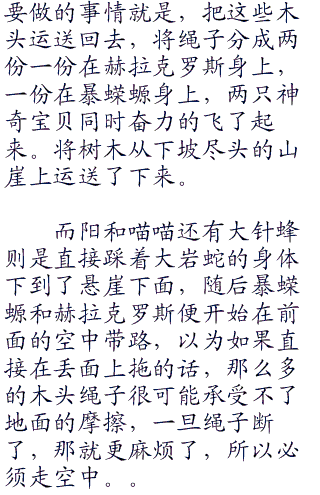 要做的事情就是，把这些木
头运送回去，将绳子分成两
份一份在赫拉克罗斯身上，
一份在暴蝾螈身上，两只神
奇宝贝同时奋力的飞了起
来。将树木从下坡尽头的山
崖上运送了下来。
而阳和喵喵还有大针蜂
则是直接踩着大岩蛇的身体
下到了悬崖下面，随后暴蝾
螈和赫拉克罗斯便开始在前
面的空中带路，以为如果直
接在丢面上拖的话，那么多
的木头绳子很可能承受不了
地面的摩擦，一旦绳子断
了，那就更麻烦了，所以必
须走空中。。